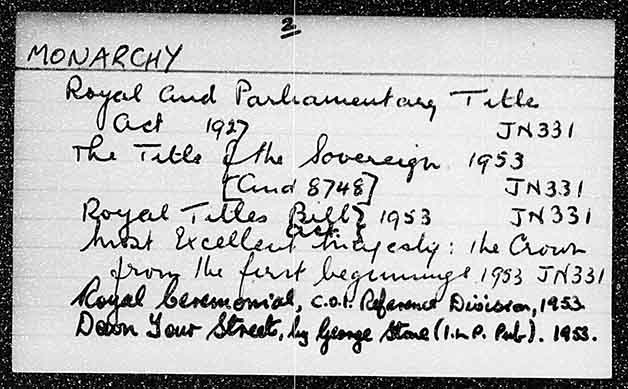 2
MONARCHY
Royal and Parliamentary Title
Act 1927 JN331
The Title of the Sovereign 1953
[Cmd 8748] JN331
Royal Titles Bill } 1953 JN331
Act }
Most Excellent Majesty: the Crown
from the first beginnings 1953 JN331
Royal Ceremonial, C.O.I. Reference Division, 1953.
Down Your Street, by George Stone (I.L.P. Pub). 1953.